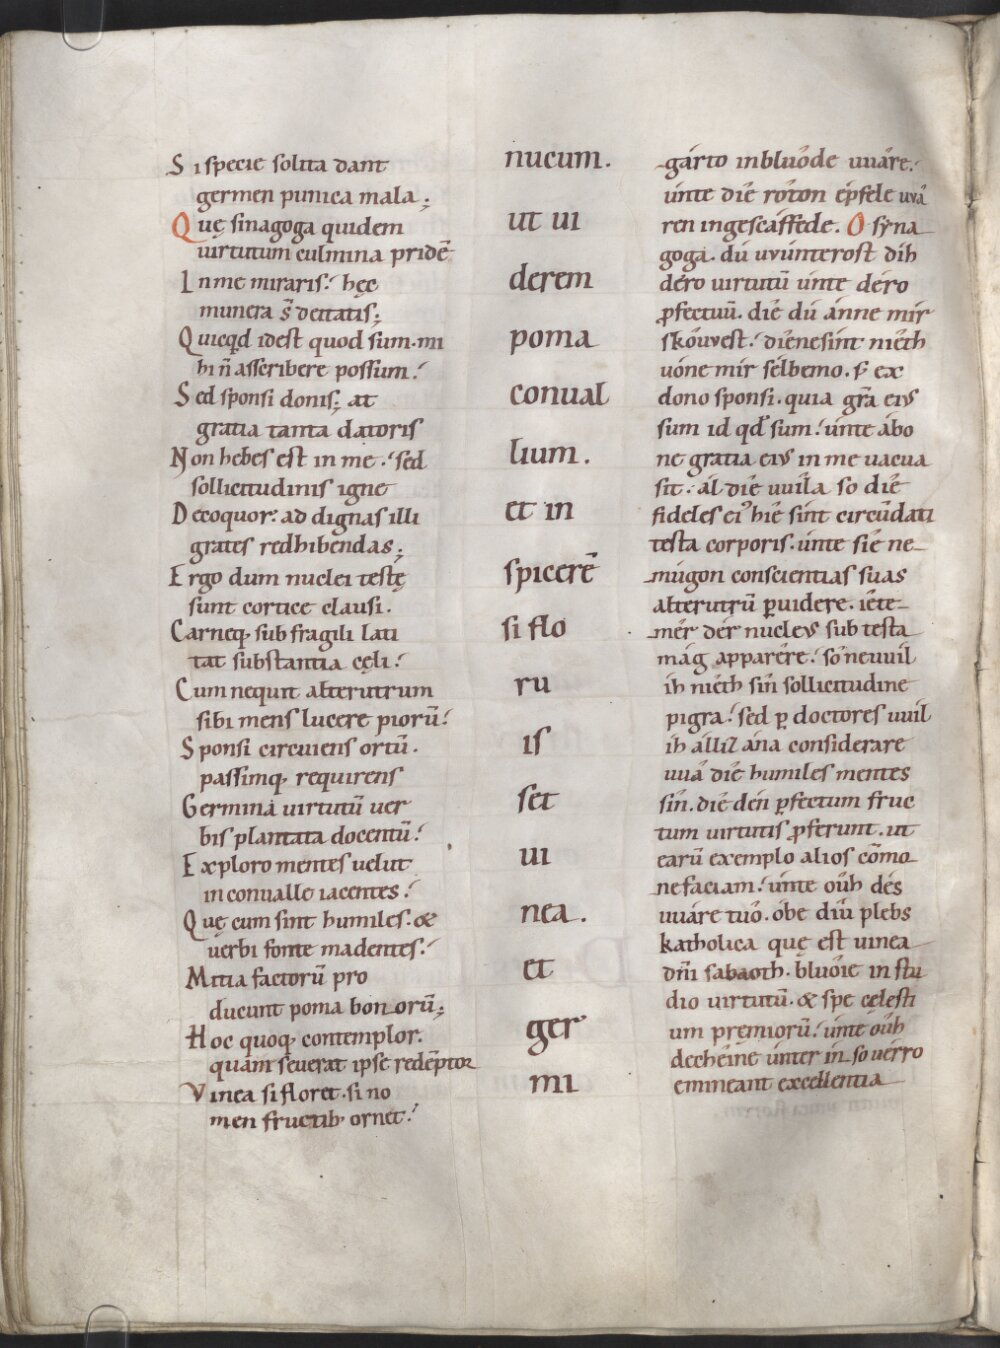 S i specie solita dant
germen punica mala;
Q uę sinagoga quidem
uirtutum culmina pridē
I n me miraris? hęc
munera s̄ deitatis;
Q uicqd idest quod sum. mi
hi n̄ asscribere possum?
S ed sponsi donis; at
gratia tanta datoris
N on hebes est in me. sed
sollicitudinis igne
D ecoquor. ad dignas illi
grates redhibendas;
E rgo dum nuclei testę
sunt cortice clausi.
C arneq; sub fragili lati
tat substantia cęli?
C um nequit alterutrum
sibi mens lucere piorū?
S ponsi circuiens ortū.
passimq; requirens
G ermina uirtutū uer
bis plantata docentū?
E xploro mentes uelut
in conualle iacentes?
Q uę cum sint humiles. &
uerbi fonte madentes?
M itia factorū pro
ducunt poma bonorū;
H oc quoq; contemplor.
quam seuerat ipse redēptor
V inea si floret. si no
men fructib; ornet?
nucum.
ut ui
derem
poma
conual
lium.
et in
spicerē
si flo
ru
is
set
ui
nea.
et
ger
mi
gárto in blůode uuáre?
únte dié róton épfele uuá
ren ingescáffede. O syna
goga. dú uvúnterost dih
déro uirtutū únte déro
ꝓfectuū. dié dú ánne mír
skóuvest? diénesint niéth
uóne mír sélbemo. s; ex
dono sponsi. quia grā eius
sum id qd sum? únte ábo
ne gratia eius in me uacua
sit. ál dié uuíla so dié
fideles ei' hié sint circūdati
testa corporis. únte sié ne
múgon conscientias suas
alterutrū ꝑuidere. iéte
mér dér nucleus sub testa
mág apparére? só neuuil
ih niéth sín sollicitudine
pigra? sed ꝑ doctores uuil
ih állíz ána considerare
uuá dié humiles mentes
sín. dié dén ꝓfectum fruc
tum uirtutis ꝓferunt. ut
earū exemplo alios cōmo
ne faciam? únte oúh dés
uuáre tuo. óbe diú plebs
katholica quę est uinea
dn̄i sabaoth. blůoie in stu
dio uirtutū. & spe cęlesti
um premiorū? únte oúh
decheíne únter in so uérro
emineant excellentia